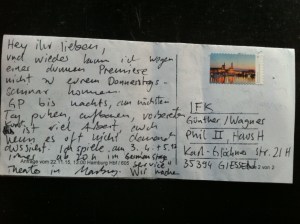 Hey ihr lieben,
und wieder kann ich wegen
einer dummen Premiere
nicht zu eurem Donnerstags-
seminar kommen.
GP bis nachts, am nächsten
putzen, aufbauen, vorbereiten
ist viel Arbeit, auch
wenn es oft nicht danach
aussieht. Ich spiele am 3.4. + 5.12
um 20h im German Stage
Service
Theater in Marburg. Wir machen
LFK
Günther / Wagner
Phil II, Haus H
Karl-Glöckner-Str. 21 H
35394 GIESSEN
2 von 2